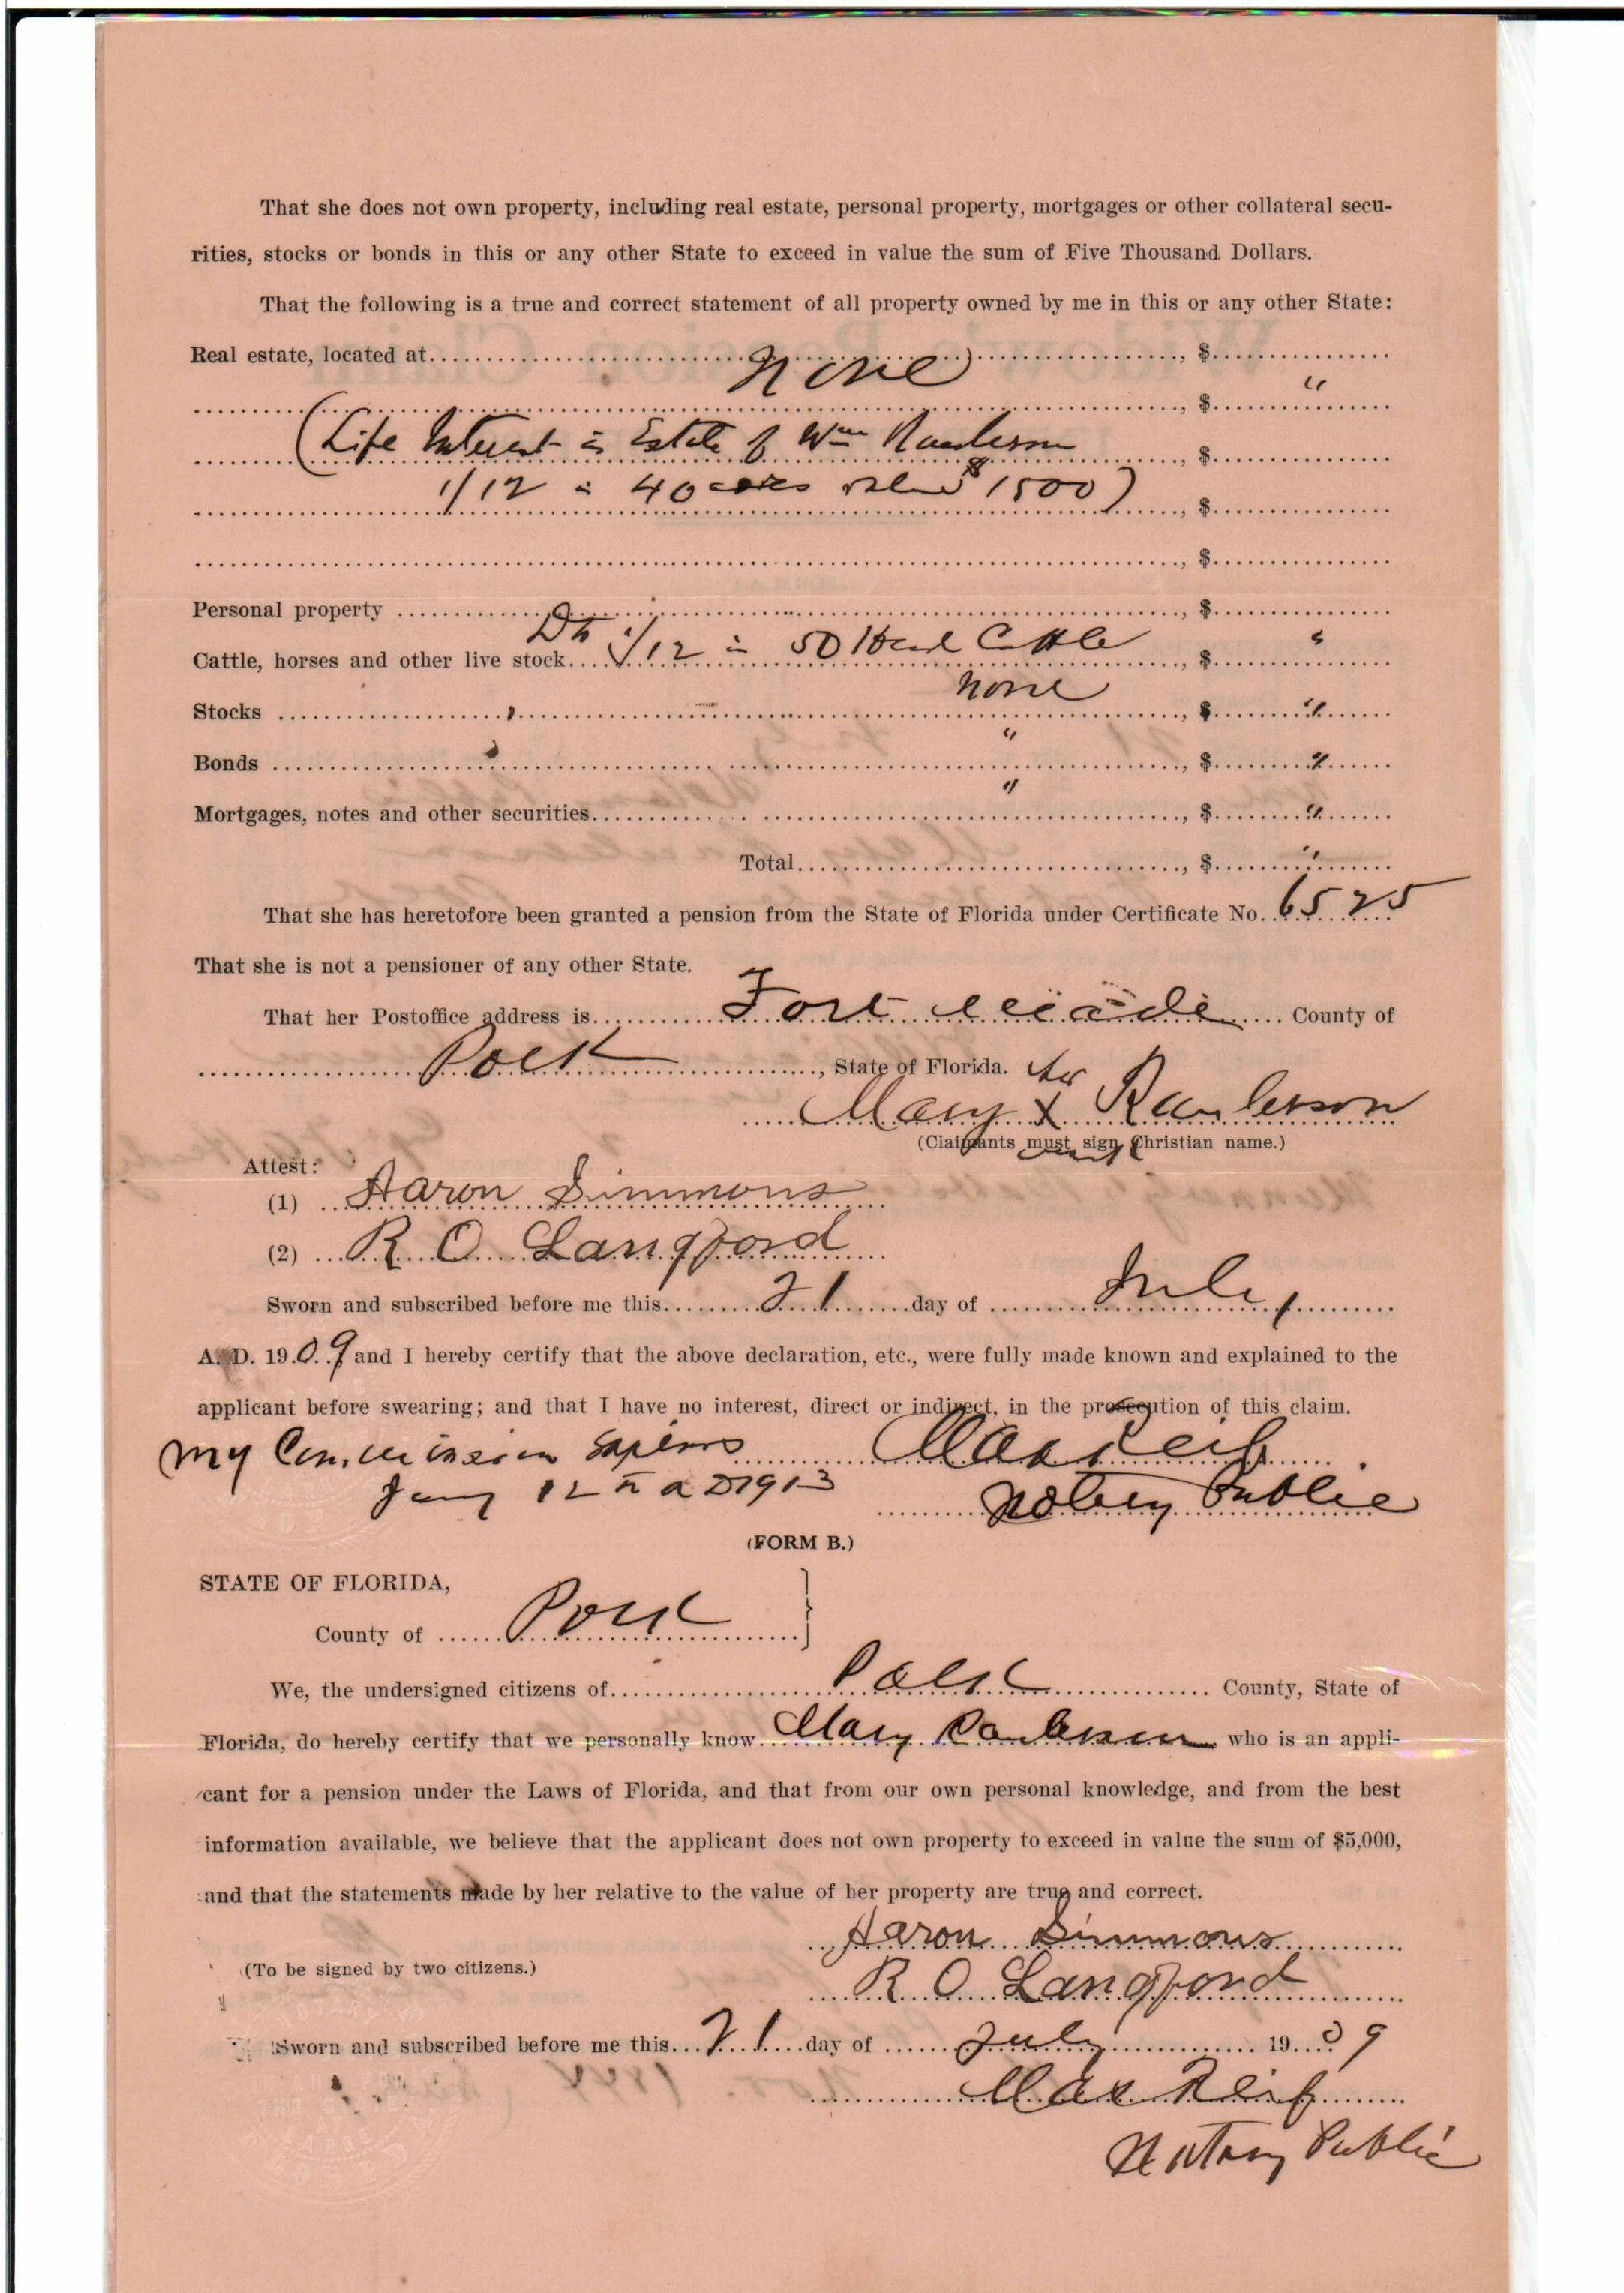 That she does not own property, including real estate, personal property, mortgages or other collateral secu-
rities, stocks or bonds in this or any other State to exceed in value the sum of Five Thousand Dollars.
That the following is a true and correct statement of all property owned by me in this or any other State:
Real estate, located at.......... None .........., $..........
.........., $.......... "
(Life Interest in Estate of Wm Raulerson .........., $..........
1/12 in 40 acres value $1500) .........., $..........
.........., $..........
Personal property .........., $..........
Cattle, horses and other live stock.... Do 1/12 in 50 Head Cattle .........., $.......... "
Stocks .......... None .........., $.......... "
Bonds .......... " .........., $.......... "
Mortgages, notes and other securities.......... " .........., $.......... "
Total.........., $.......... "
That she has heretofore been granted a pension from the State of Florida under Certificate No. 6525
That she is not a pensioner of any other State.
That her Postoffice address is.......... Fort Meade .......... County of
.......... Polk .........., State of Florida. her
Mary X Raulerson
(Claimants must sign Christian name.)
mark
Attest:
(1) Aaron Simmons
(2) R O Langford
Sworn and subscribed before me this.......... 21 ..........day of .......... July ..........
A. D. 1909 and I hereby certify that the above declaration, etc., were fully made known and explained to the
applicant before swearing; and that I have no interest, direct or indirect, in the prosecution of this claim.
My Commission Expires .......... Max Reif
Jany 12th A D 1913 .......... Notary Public
(FORM B.)
STATE OF FLORIDA,
County of .......... Polk ..........
We, the undersigned citizens of.......... Polk .......... County, State of
Florida, do hereby certify that we personally know.... Mary Raulerson who is an appli-
cant for a pension under the Laws of Florida, and that from our own personal knowledge, and from the best
information available, we believe that the applicant does not own property to exceed in value the sum of $5,000,
and that the statements made by her relative to the value of her property are true and correct.
Aaron Simmons
(To be signed by two citizens.)
R O Langford
Sworn and subscribed before me this... 21 ...day of ...... July .......... 19....09
Max Reif
Notary Public